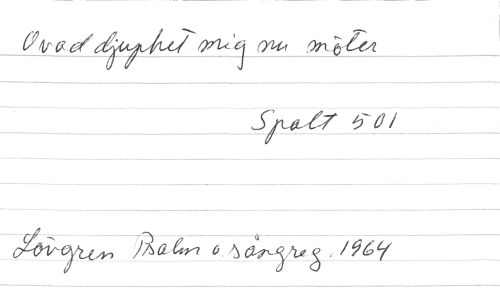 O vad djuphet mig nu möter
Spalt 501
Lövgren Psalm o sångreg. 1964